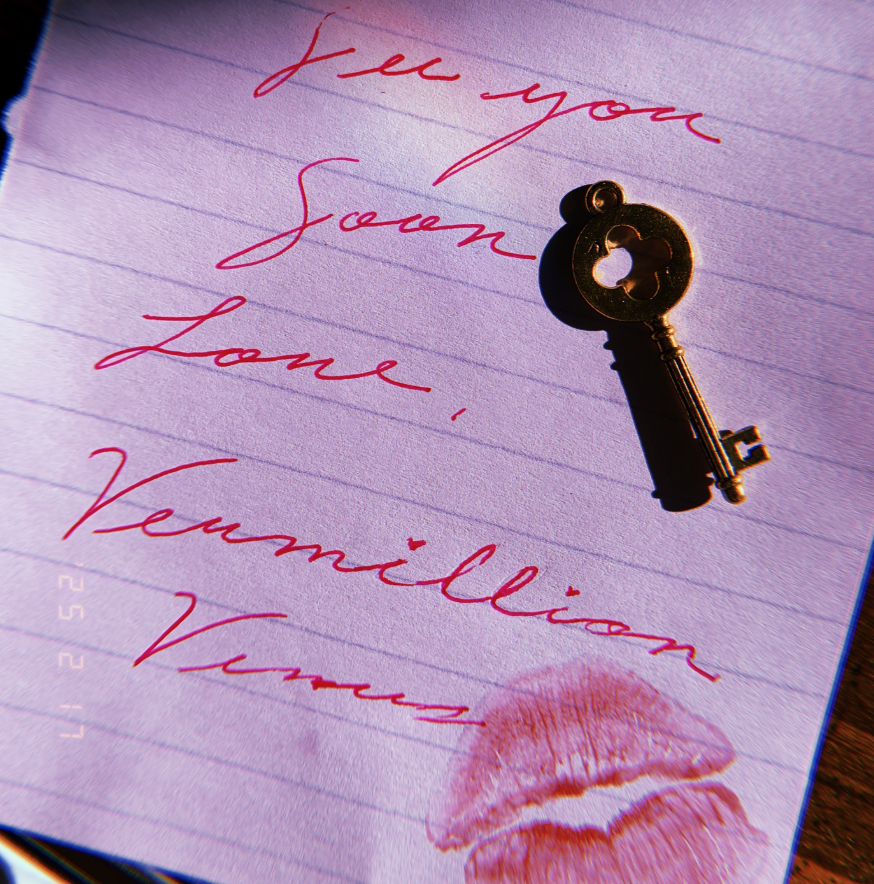 See you
Soon
Love,
Vermillion
Venus